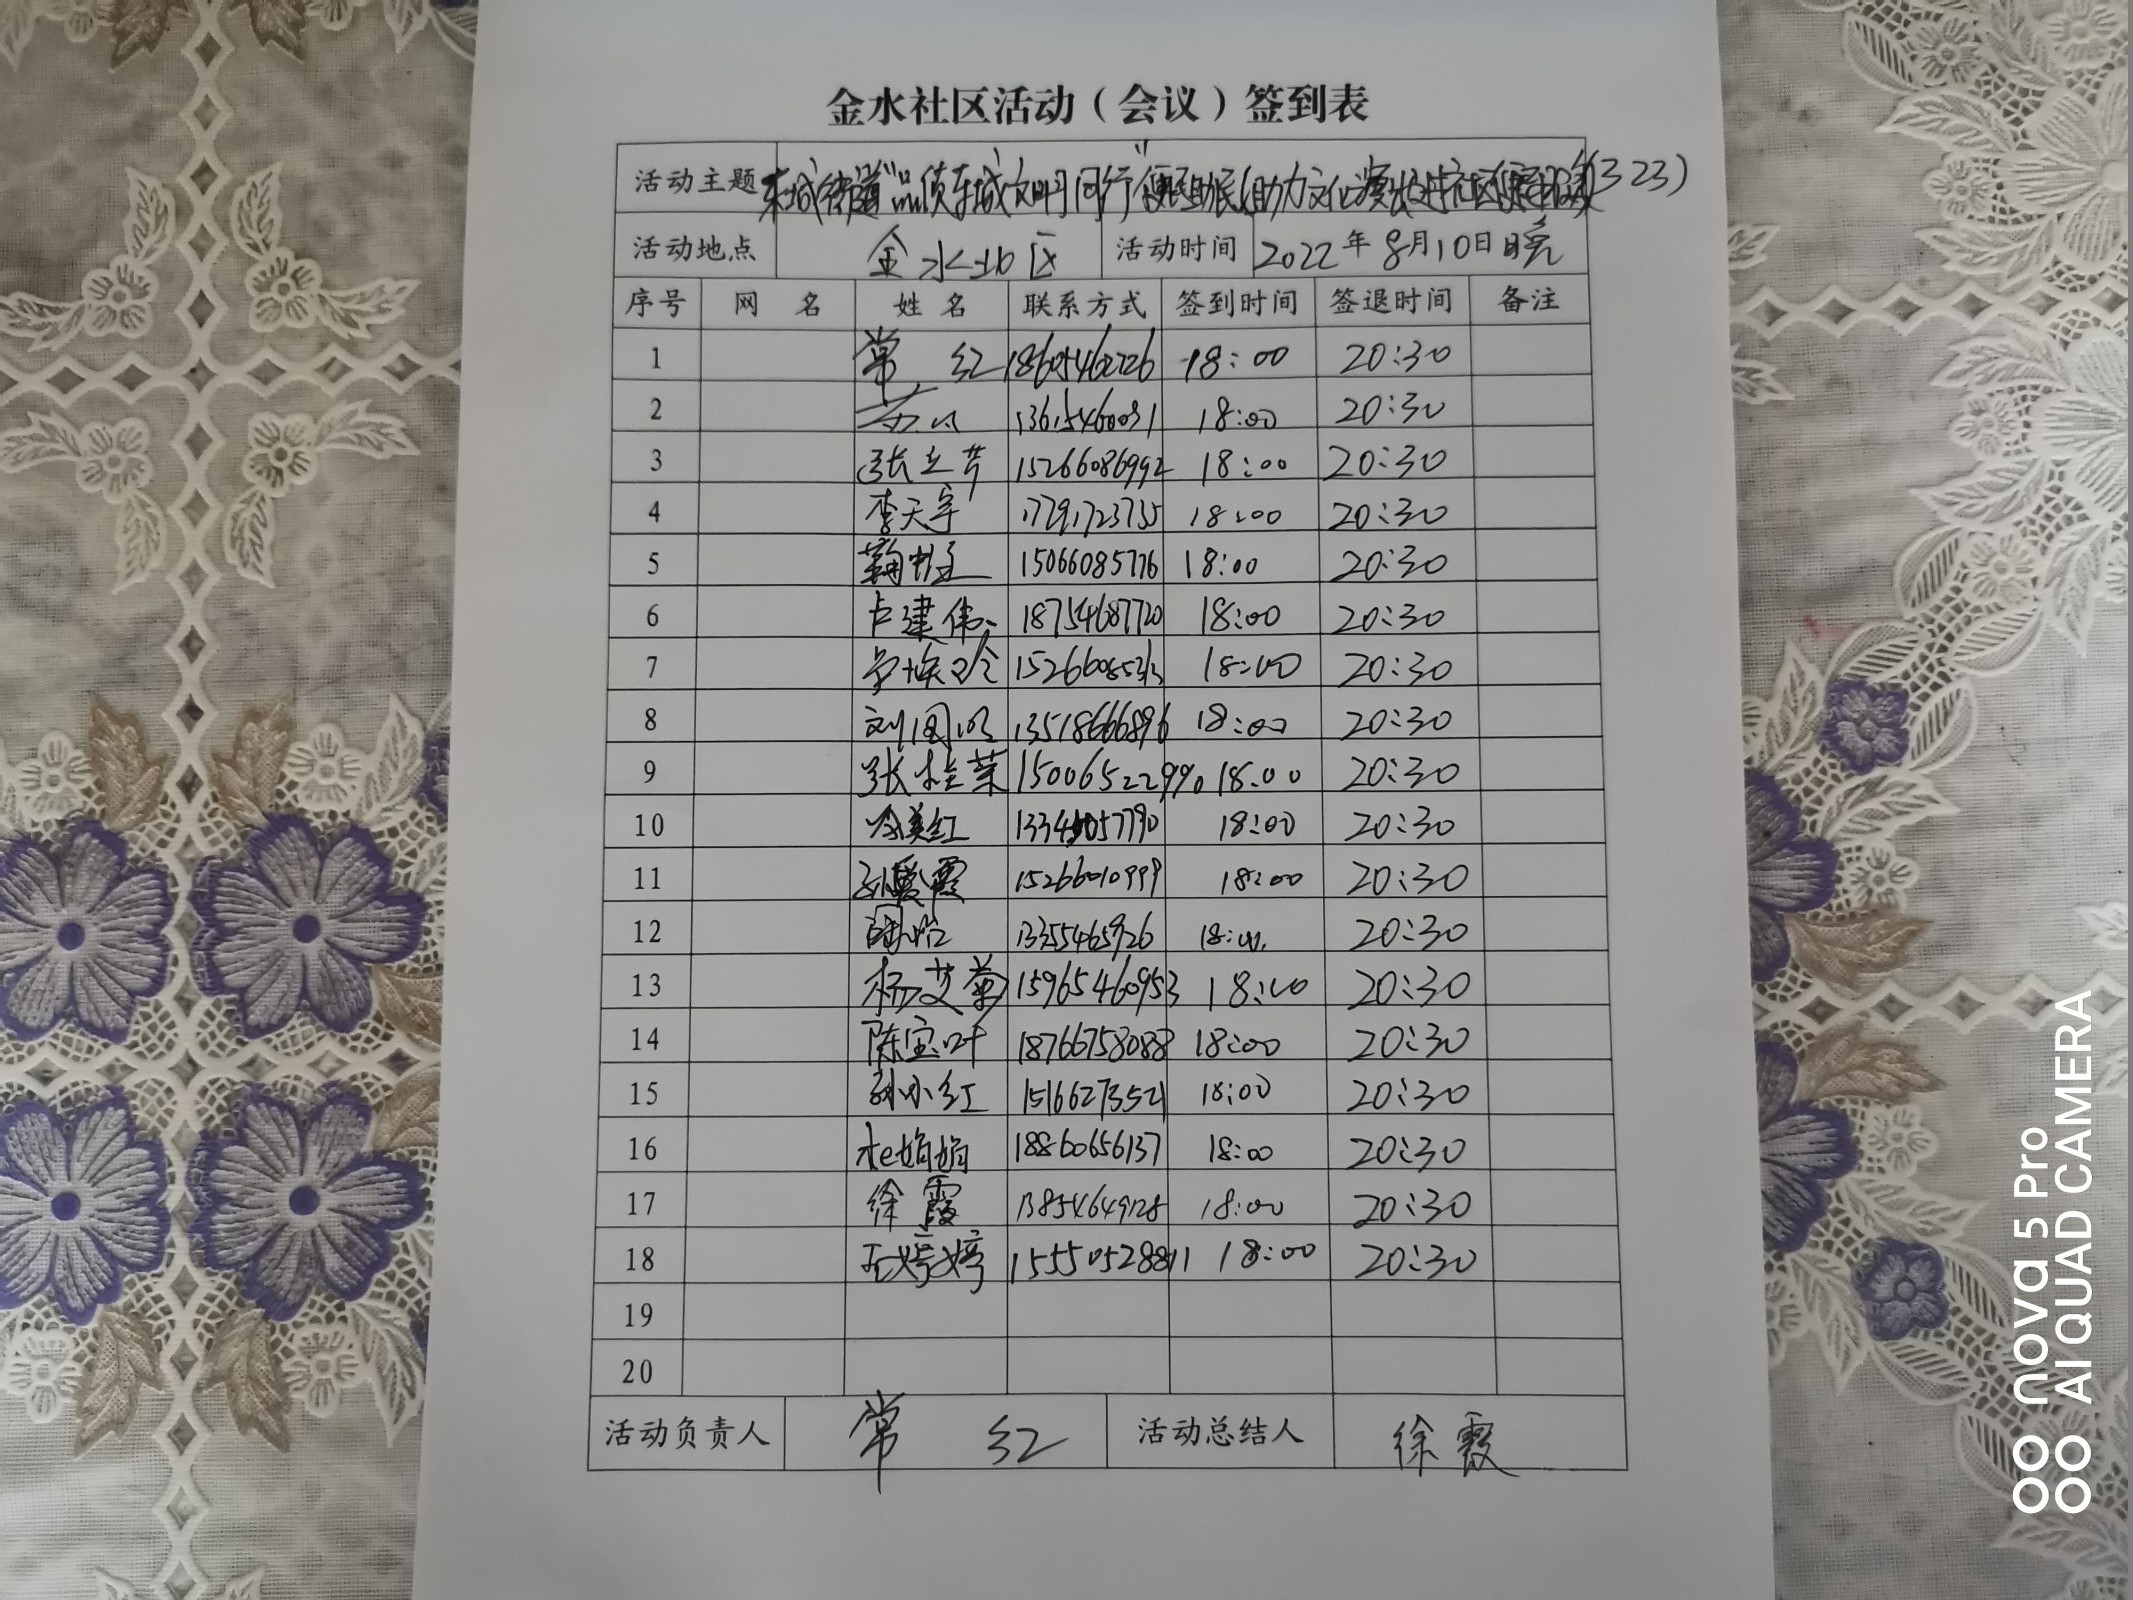 金水社区活动（会议）签到表
活动主题 东城街道"品质东城文明同行"便民助民(助力文化演出进社区(323)
活动地点 金水北区 活动时间 2022年8月10日晚
序号 网 名 姓 名 联系方式 签到时间 签退时间 备注
1 常 红 18:00 20:30
2 18:00 20:30
3 张立芹 15266086992 18:00 20:30
4 李天宇 17291723735 18:00 20:30
5 15066085776 18:00 20:30
6 卢建伟 18754687720 18:00 20:30
7 18:00 20:30
8 13518666896 18:00 20:30
9 张桂荣 18:00 20:30
10 冷美红 18:00 20:30
11 孙爱霞 15266010999 18:00 20:30
12 13355465926 18:00 20:30
13 杨艾菊 15965460953 18:00 20:30
14 陈宝叶 18766758088 18:00 20:30
15 孙小红 15166273521 18:00 20:30
16 杜娟娟 18860656137 18:00 20:30
17 徐霞 13854649128 18:00 20:30
18 王婷婷 15550528811 18:00 20:30
19
20
活动负责人 常 红 活动总结人 徐霞
nova 5 Pro
AI QUAD CAMERA